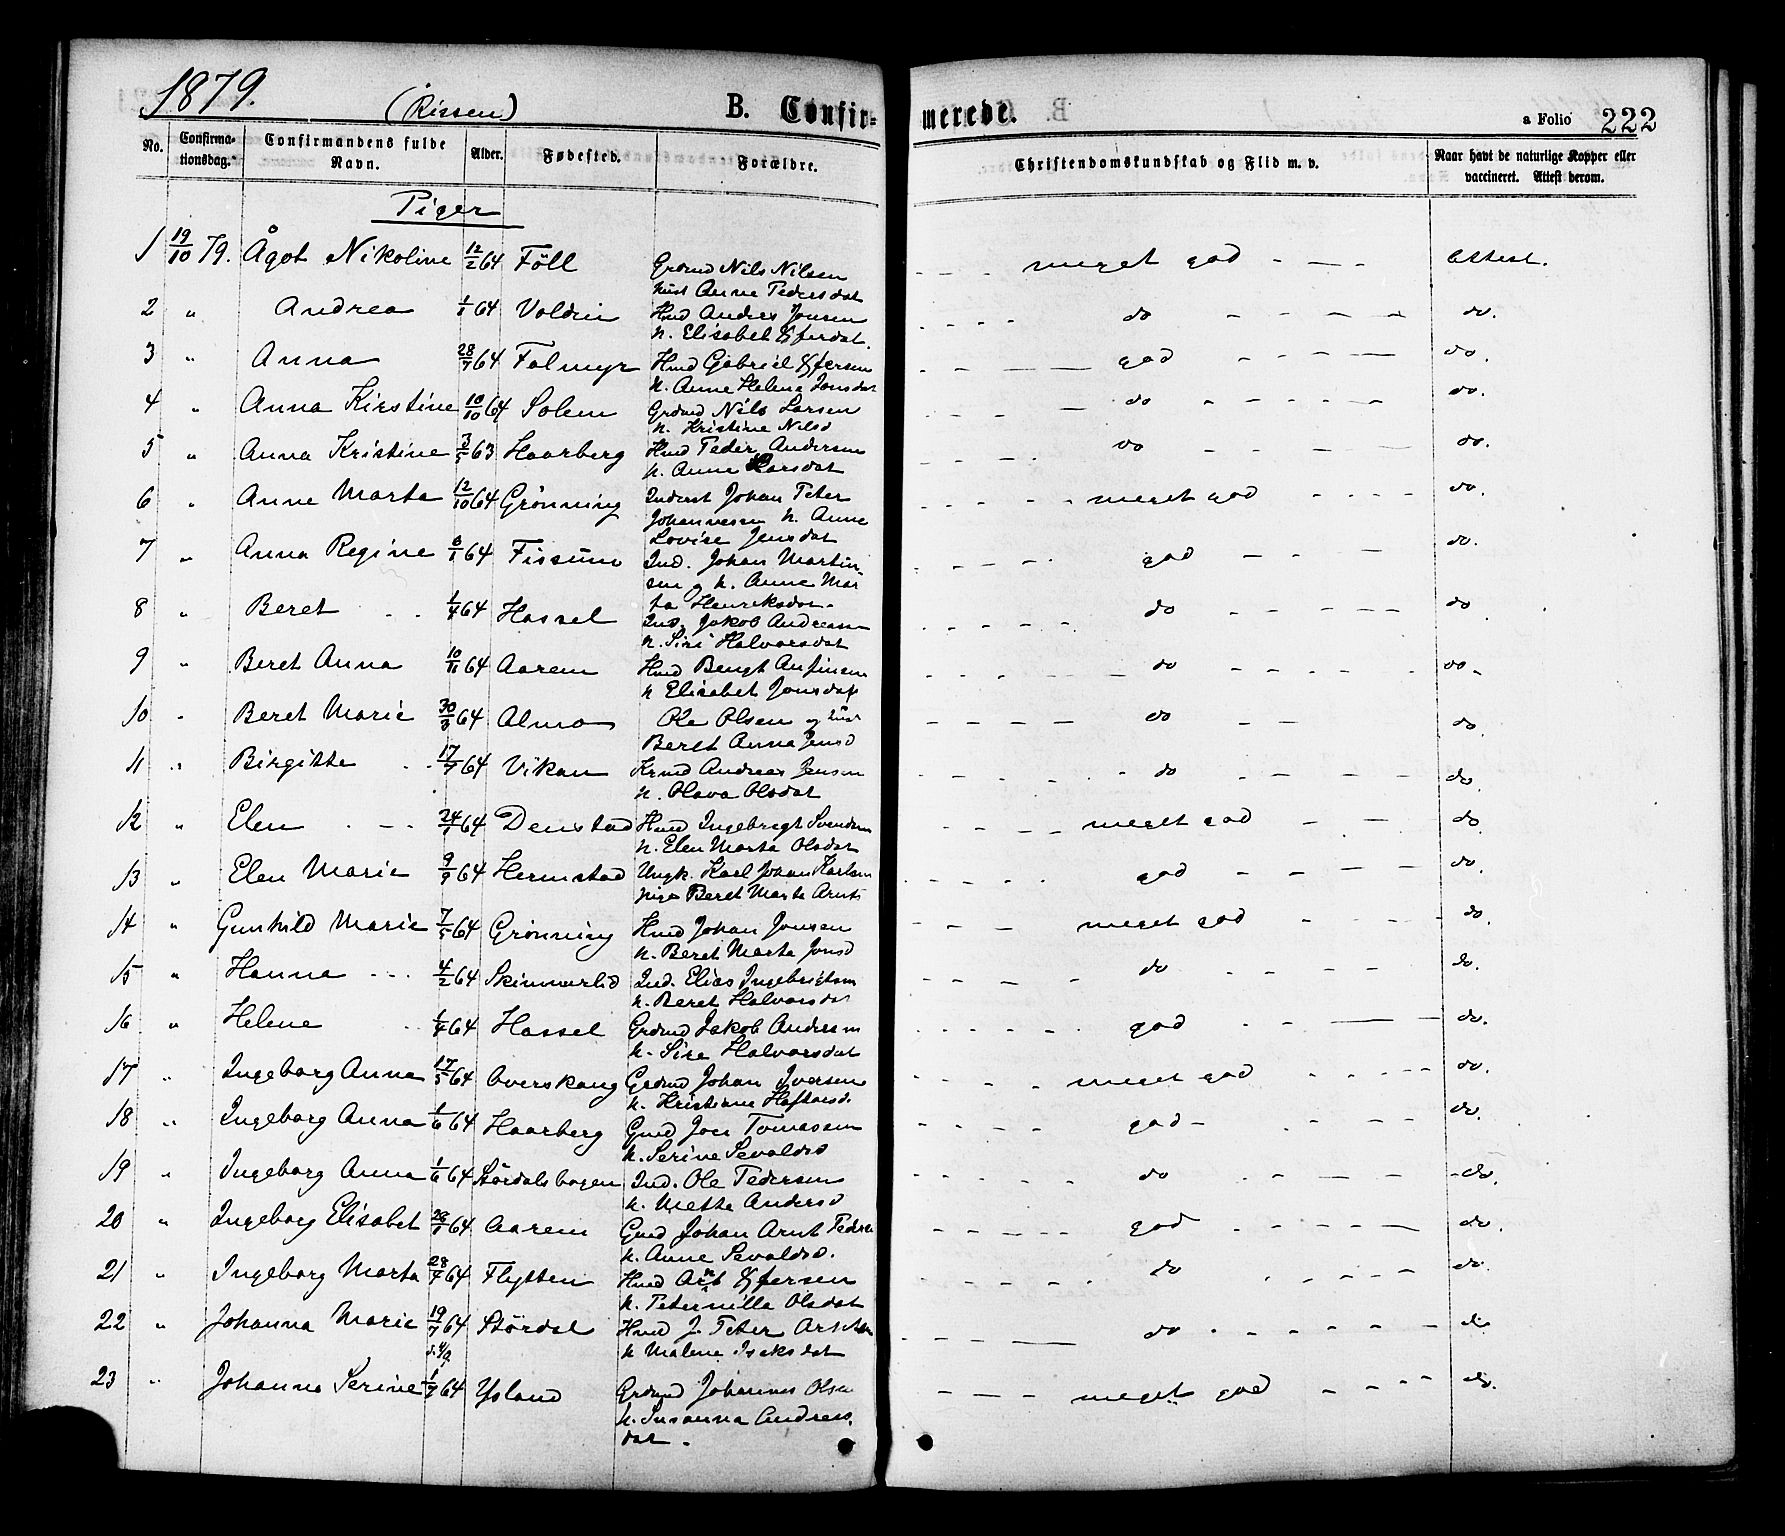 1879.
(Rissen)
B. Confir-
merede.
a Folio 222
No.
Confirma-
tionsdag.
Confirmandens fulde
Navn.
Alder.
Fødested.
Forældre.
Christendomskundskab og Flid m. v.
Naar havt de naturlige Kopper eller
vaccineret. Attest derom.
Piger
1 19/10 79. Ågot Nikoline 12/2 64 Föll Grdmd Nils Nilsen meget god Attest.
Kust Anne Pedersdat
2 " Andrea 1/1 64 Voldin Hmd Anders Jonsen do do.
K. Elisabet
3 " Anna 28/7 64 Falmyr Hmd Gabriel god do.
K. Anne Helena Jonsdat
4 " Anna Kirstine 10/10 64 Solem Grdmd Nils Larsen do do.
K. Kristine Nilsd
5 " Anna Kristine 3/5 63 Haarberg Hmd Peder Andersen do do.
K. Anne Larsdat
6 " Anne Marta 12/10 64 Grönning Inderst Johan Peter meget god do.
Johannesen K. Anne
Lovise Jensdat
7 " Anna Regine 8/1 64 Fissum Ind. Johan Martin- god do.
sen og K. Anne Mar
ta Henriksdat.
8 " Beret 1/4 64 Hassel Ind. Jakob Andreasen do do
K. Siri Halvorsdat
9 " Beret Anna 10/11 64 Aarem Hmd Bengt Anfinsen do do.
K Elisabet Jonsdat
10 " Beret Marie 30/3 64 Alma Ole Olsen og Kust do do.
Beret Anna Jensd
11 " Birgitte 17/7 64 Vikan Andreas Jensen do do.
K. Olava Olsdat
12 " Elen 24/1 64 Denstad Hmd Ingebrigt Svendsen meget god do.
K. Elen Marta Olsdat
13 " Elen Marie 9/9 64 Hermstad Ungk. Karl Johan Karlsen god do.
Pige Beret Marta Arnts
14 " Gunhild Marie 7/5 64 Grönning Hmd Johan Jonsen meget god do.
K. Beret Marta Jonsd
15 " Hanna 4/2 64 Skimmerlid Ind. Elias Ingebrigtsen do do.
K. Beret Halvorsdat
16 " Helene 1/4 64 Hassel Grdmd Jakob Andersen god do.
K. Sire Halvorsdat
17 " Ingeborg Anna 17/5 64 Overskaug Grdmd Johan Iversen meget god do.
K. Kristiane Haftorsd.
18 " Ingeborg Anna 1/6 64 Haarberg Gmd Joen Tomasen god do.
K. Serine Sevaldsd
19 " Ingeborg Anna 1/6 64 Stördalsbogen Ind. Ole Pedersen do do.
K. Mette Andersd
20 " Ingeborg Elisabet 64 Aarem Gmd Johan Arnt Peders god do.
K. Anne Sevaldsd.
21 " Ingeborg Marta 28/4 64 Flytten Hmd do do.
K. Peternille Olsdat
22 " Johanna Marie 19/7 64 Stördal Hmd J. Peter do do
K Malene Isaksdat
23 " Johanna Serine 64 Ysland Grdmd Johannes Olsen meget god do.
K. Susanna Andreas
dat.